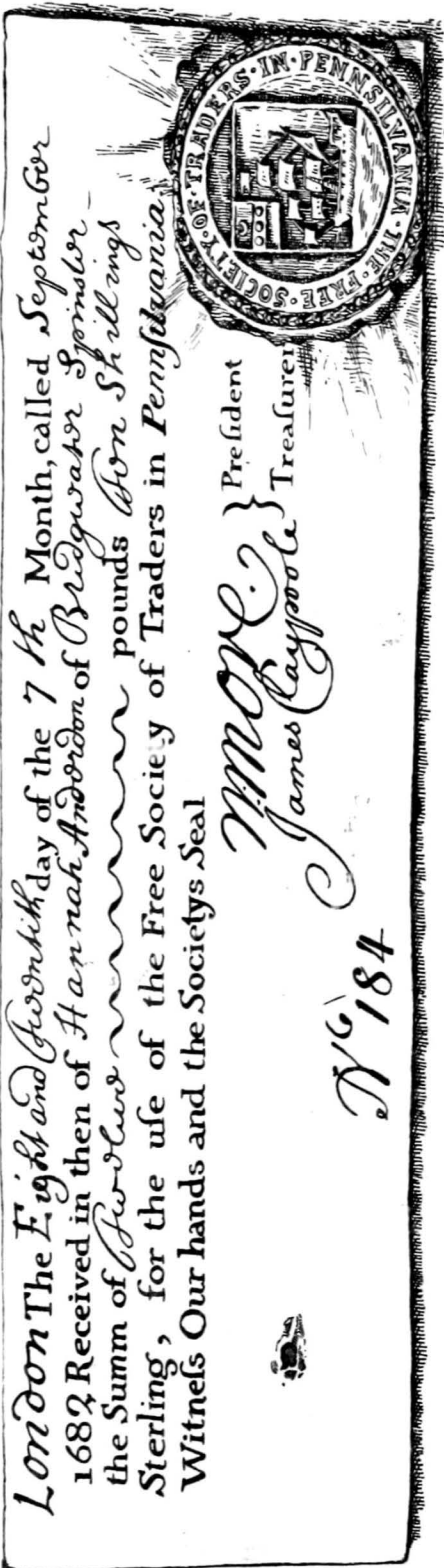 London The Eight and Twentith day of the 7th Month, called September
1682 Received in then of Hannah Anderdon of Bridgwater Spinster
the Summ of Twelve pounds Ten Shillings
Sterling, for the uſe of the Free Society of Traders in Pennſilvania
Witneſs Our hands and the Societys Seal
N. More. } Preſident
James Claypoole } Treaſurer
No 184
THE·FREE·SOCIETY·OF·TRADERS·IN·PENNSILVANIA